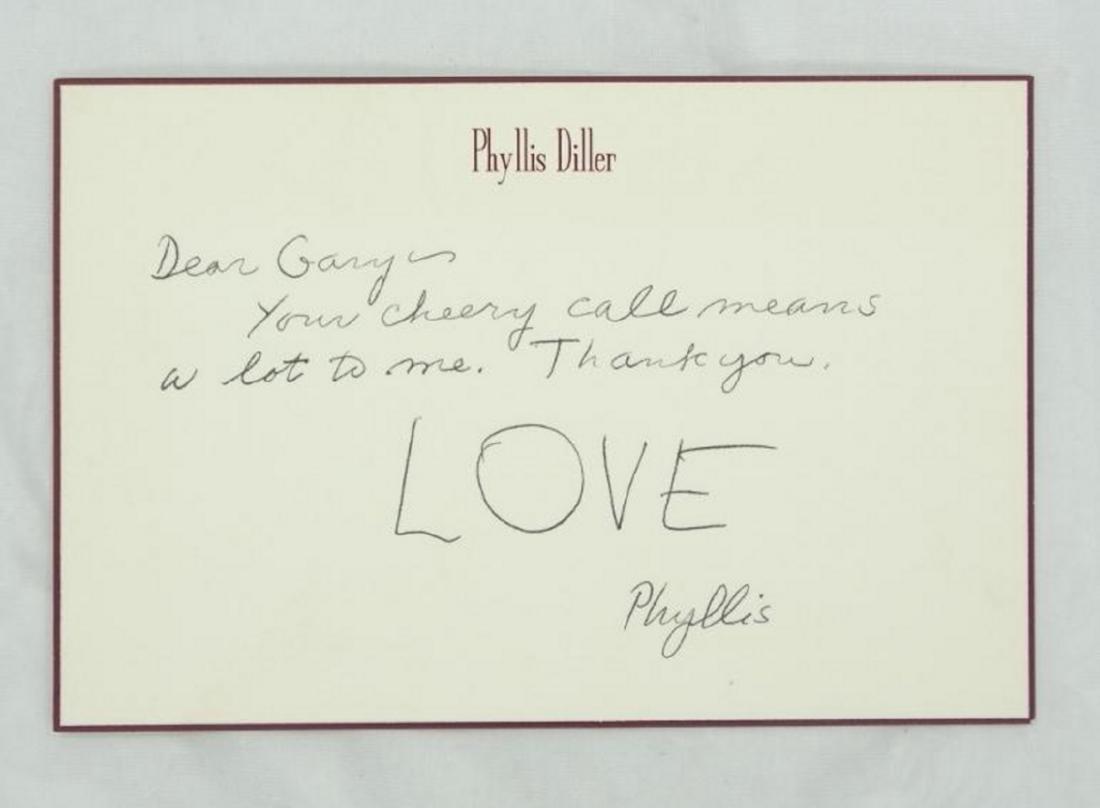 Phyllis Diller
Dear Gary ~
Your cheery call means
a lot to me. Thank you.
LOVE
Phyllis